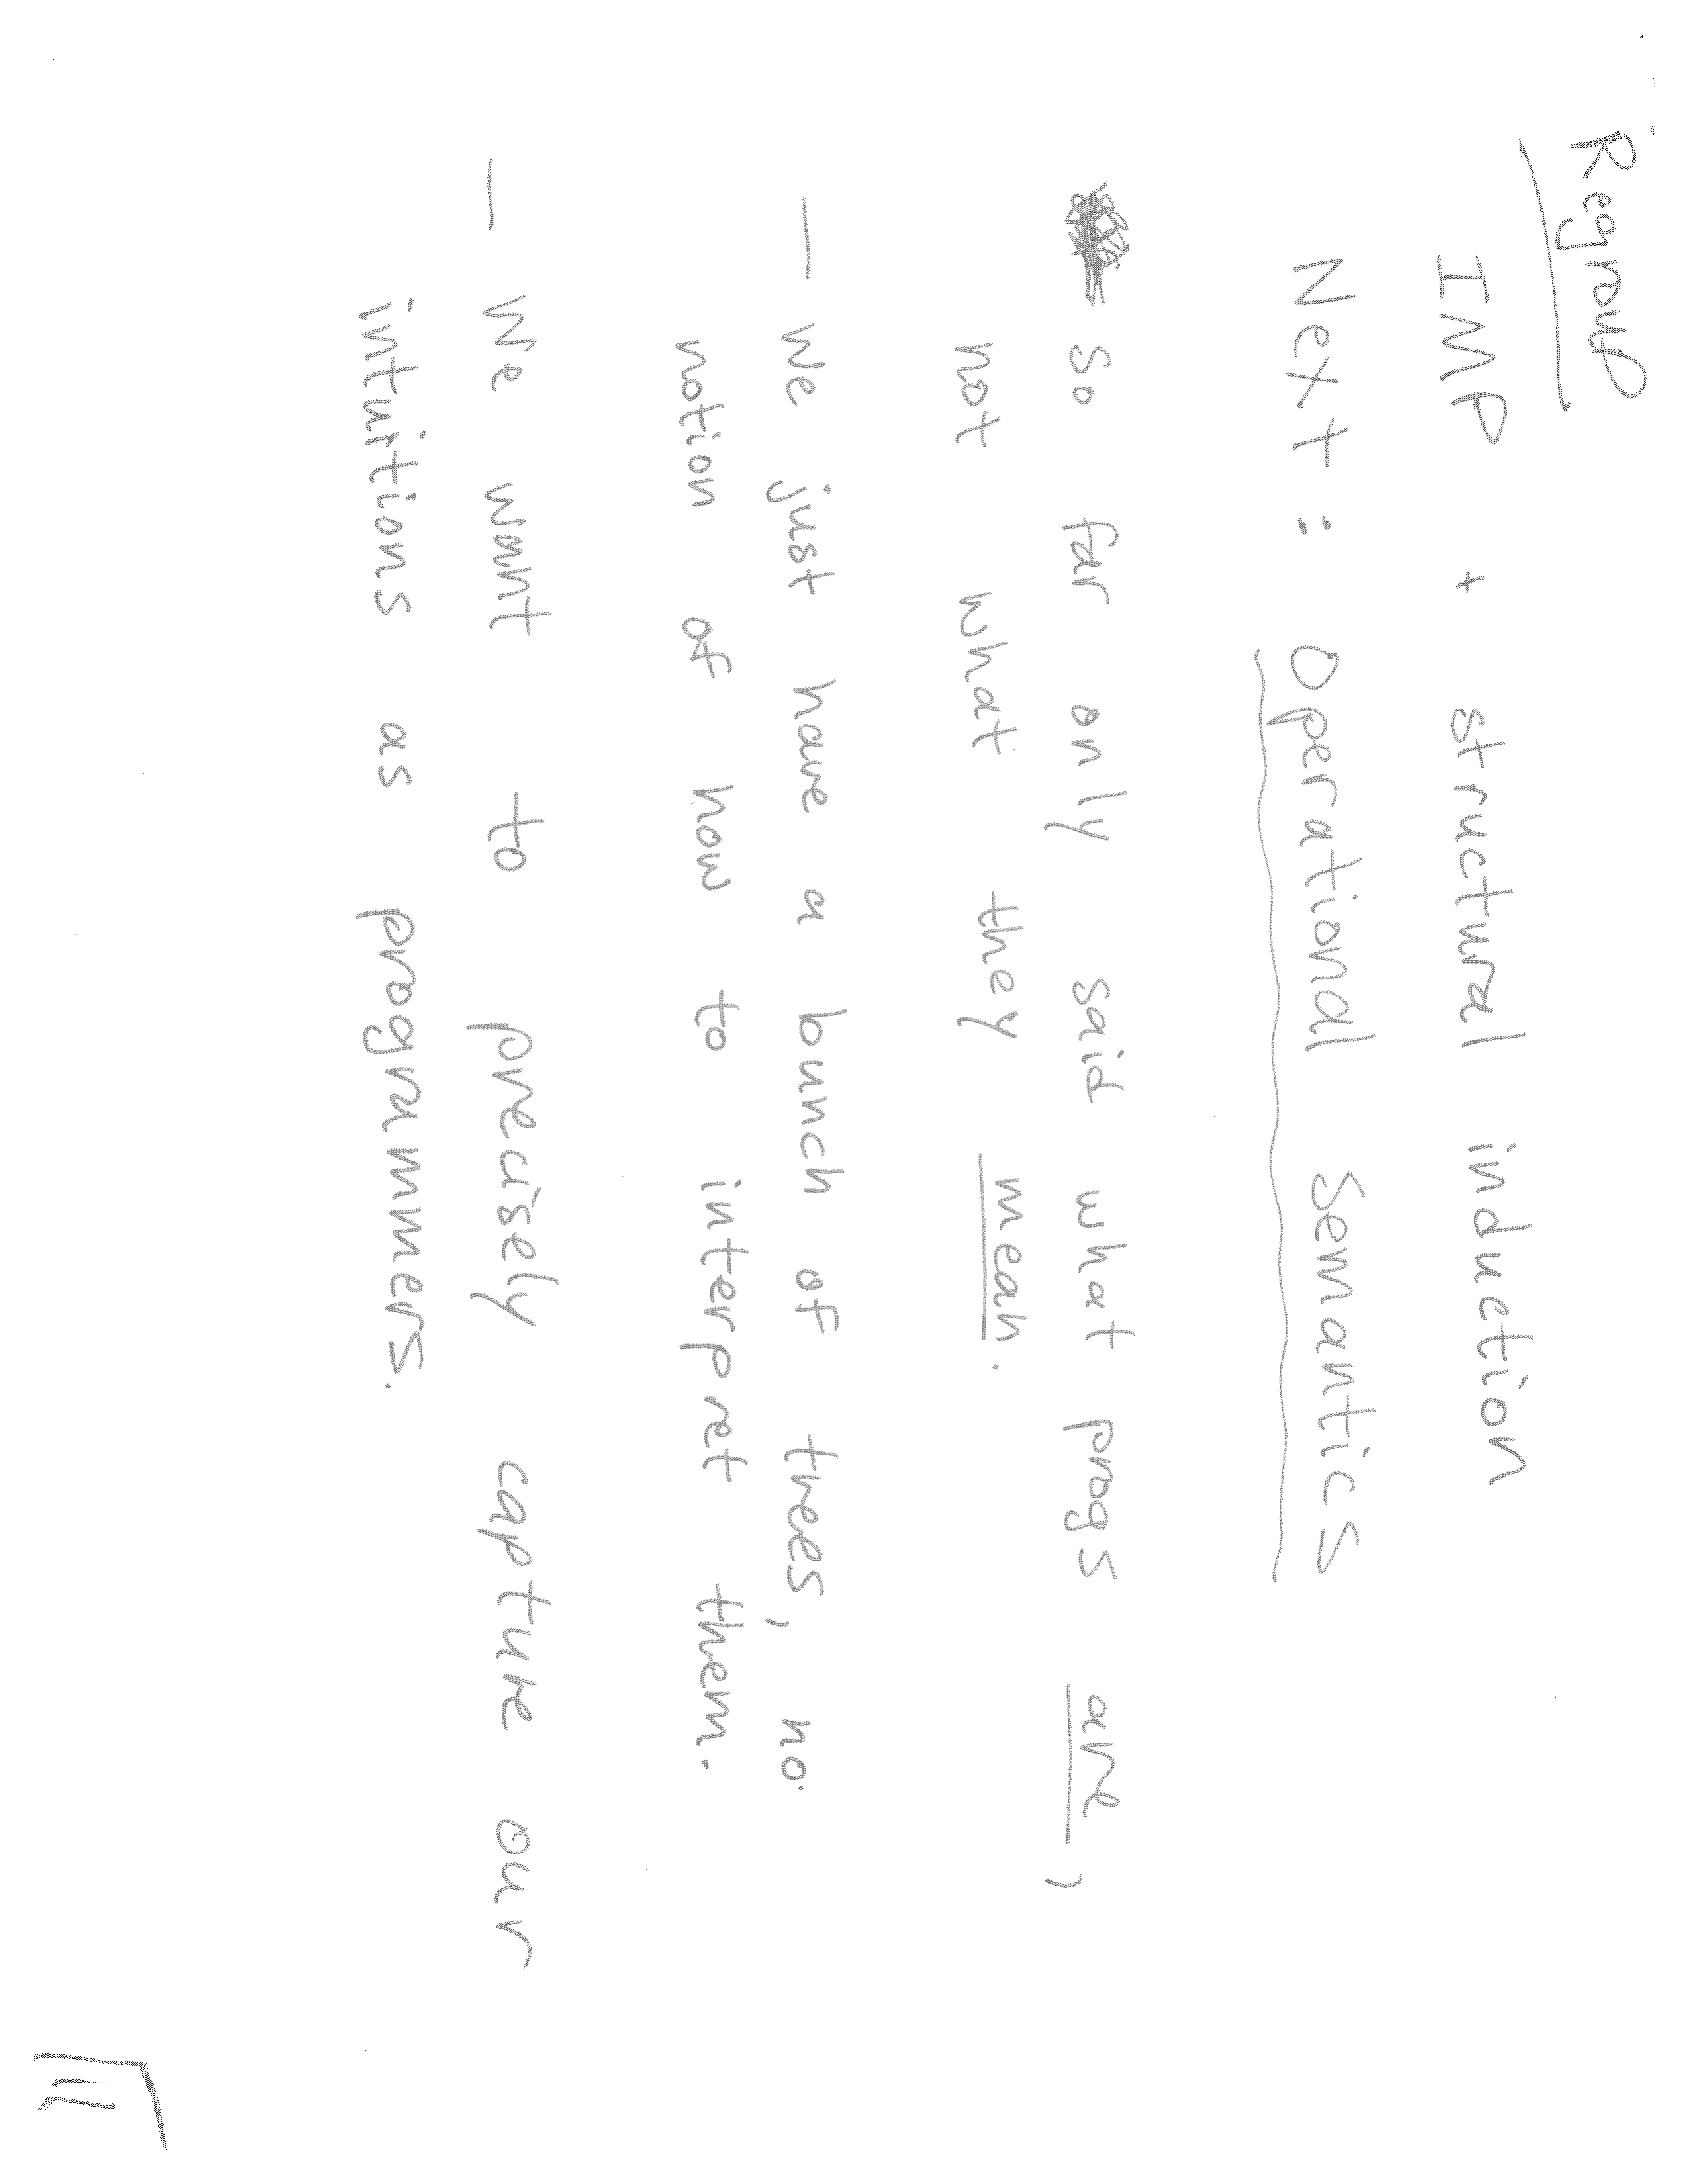 Regroup
IMP + structural induction
Next: Operational Semantics
So far only said what progs are,
not what they mean.
— We just have a bunch of trees, no
notion of how to interpret them.
— We want to precisely capture our
intuitions as programmers.